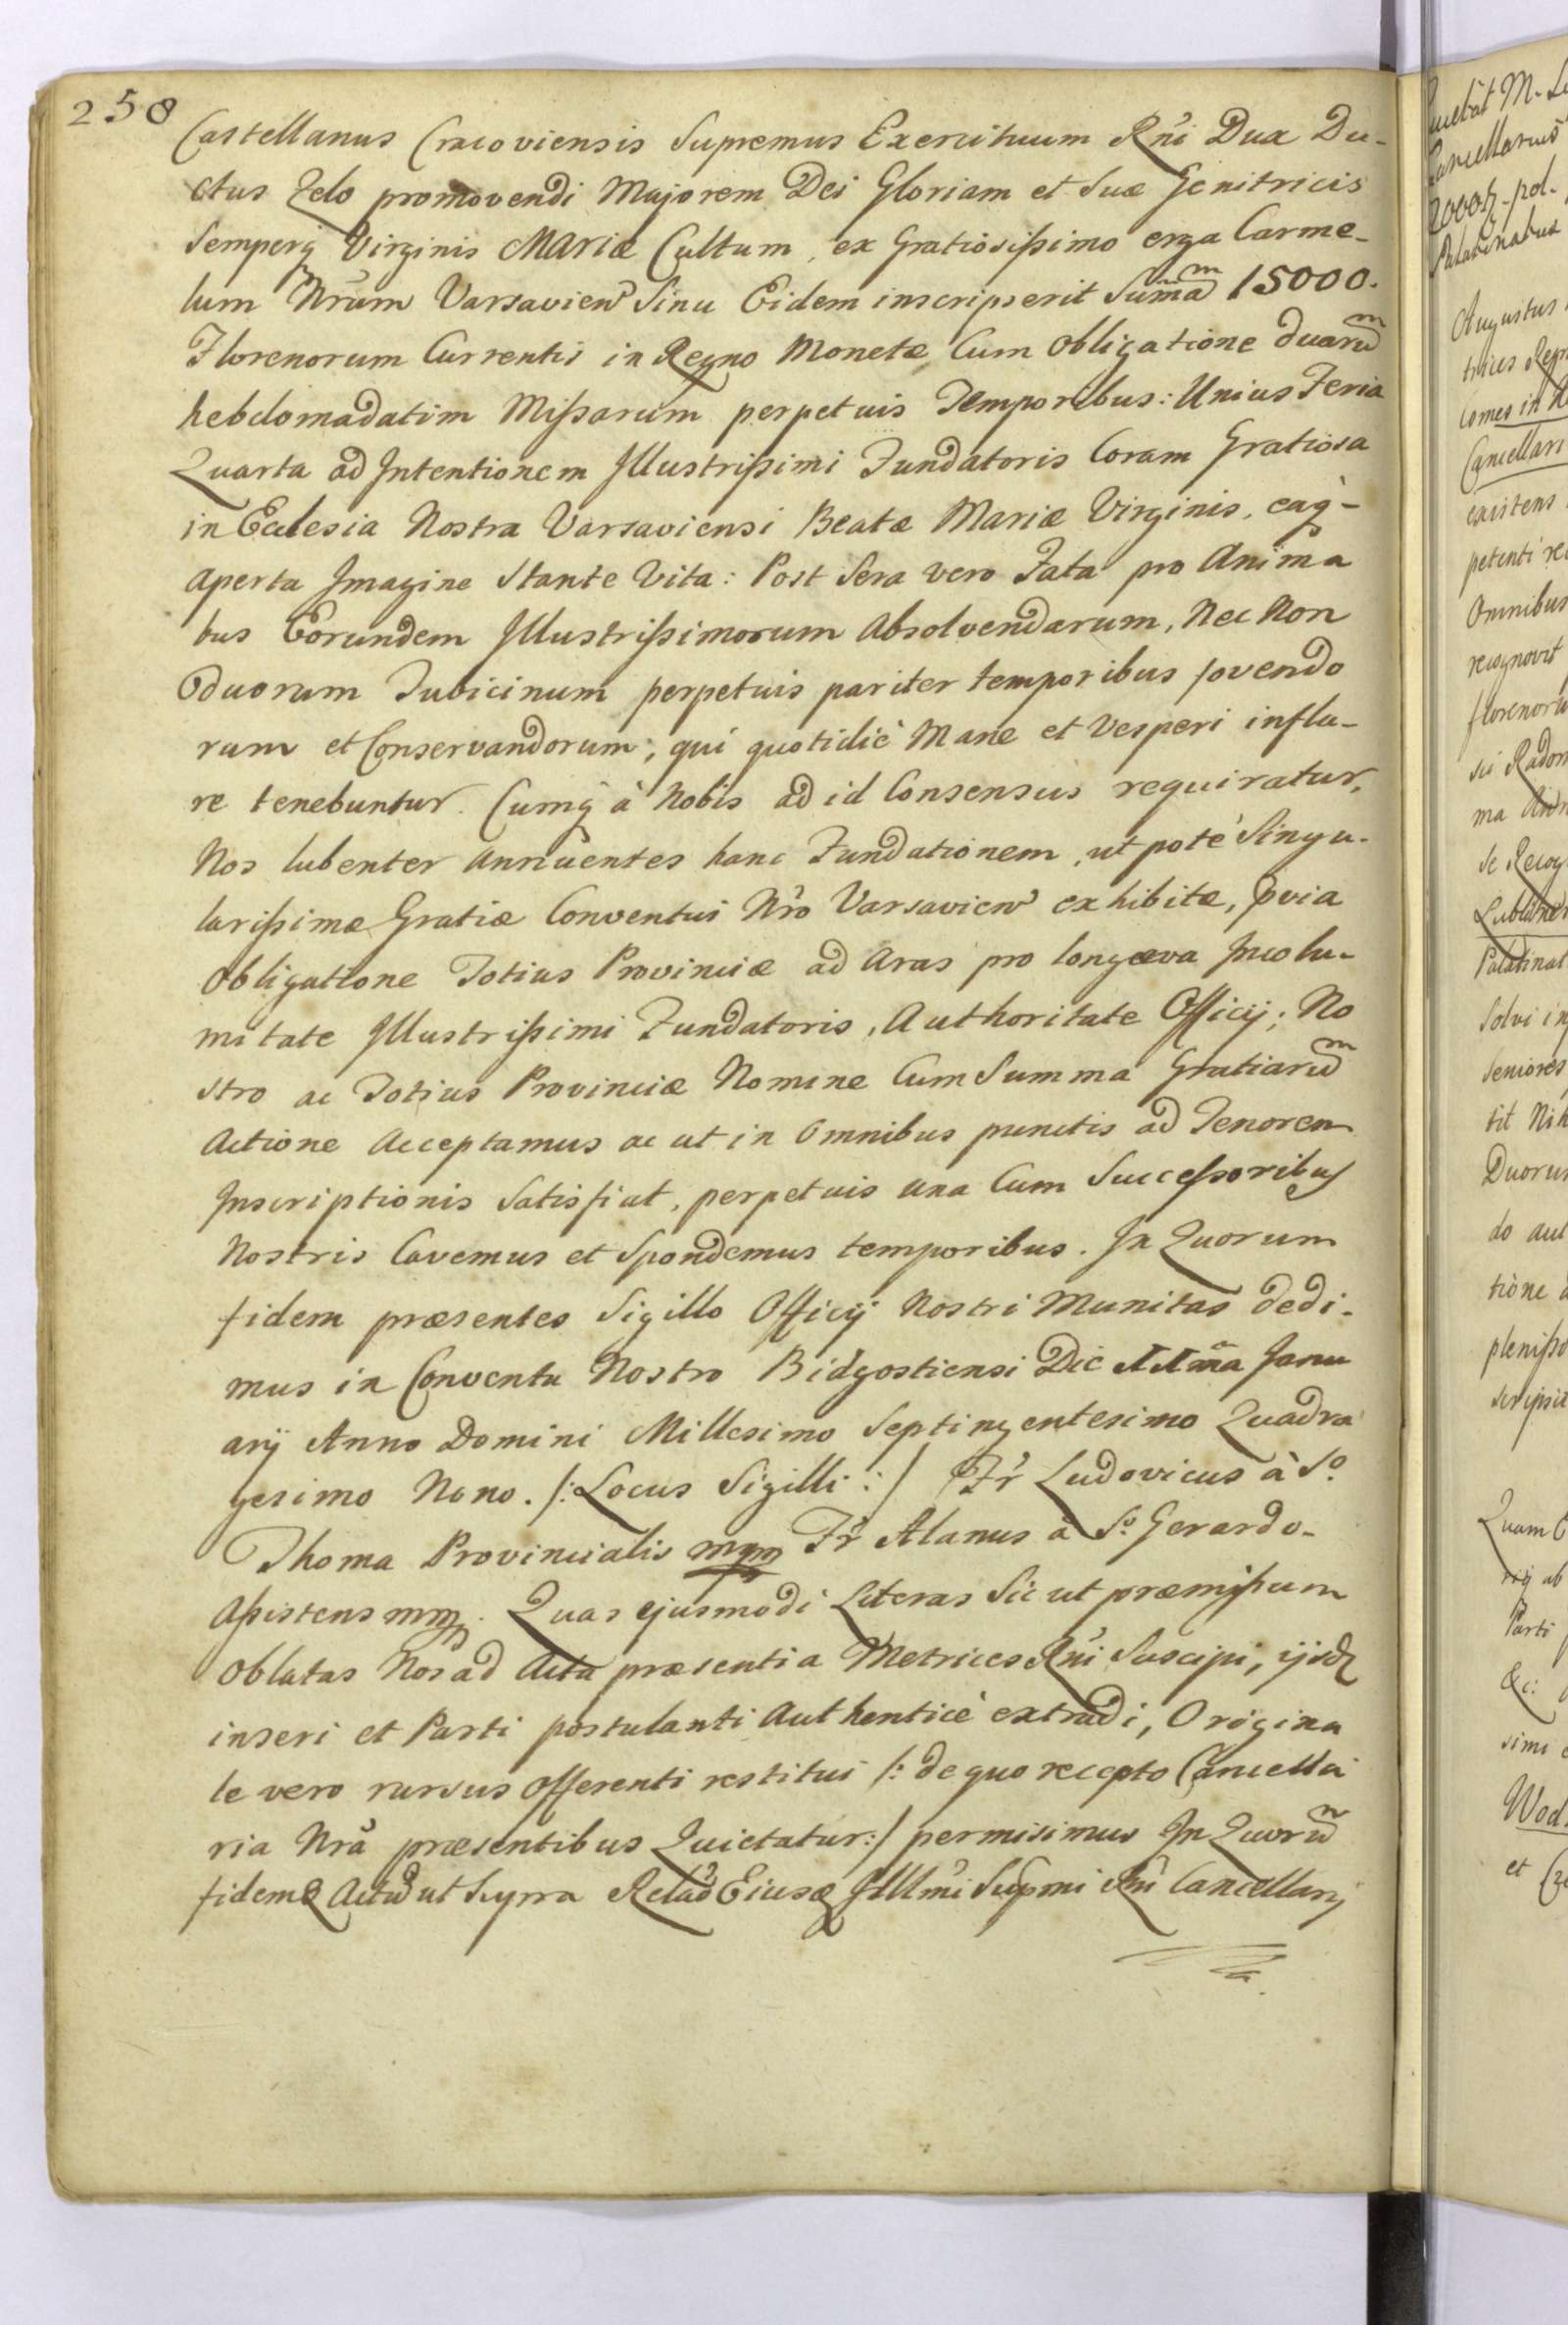 258
Castellanus Cracoviensis Supremus Exercituum Rni Dux Du-
ctus Zelo promovendi Majorem Dei Gloriam et Suæ Genitricis
Semperq Virginis MARIÆ Cultum, ex Gratiosißimo erga Carme-
lum Nrum Varsavien Sinu Eidem inscripserit Sumam 15000.
Florenorum Currentis in Regno Monetæ Cum Obligatione duarum
hebdomadatim Mißarum perpetuis Temporibus: Unius Feria
Quarta ad Intentionem Illustrißimi Fundatoris Coram Gratiosa
in Ecclesia Nostra Varsaviensi Beatæ Mariæ Virginis, eaq-
aperta Imagine Stante Vita: Post Sera vero Fata pro Anima
bus Eorundem Illustrißimorum Absolvendarum, Nec Non
duorum Tubicinum perpetuis pariter temporibus fovendo
rum et Conservandorum; qui quotidiè Mane et Vesperi infla-
re tenebuntur. Cumq à Nobis ad id Consensus requiratur,
Nos lubenter Annuentes hanc Fundationem, ut poté Singu-
larißimæ Gratiæ Conventui Nro Varsavien exhibitæ, pvia
Obligatione Totius Provinciæ ad Aras pro longæva Incolu-
mitate Illustrißimi Fundatoris, Authoritate Officij; No
stro ac Totius Provinciæ Nomine Cum Summa Gratiarum
Actione Acceptamus ac ut in Omnibus punctis ad Tenorem
Inscriptionis Satisfiat, perpetuis una Cum Succeßoribus
Nostris Cavemus et Spondemus temporibus. In Quorum
fidem præsentes Sigillo Officij Nostri Munitas dedi-
mus in Conventu Nostro Bidgostiensi Die Janu
arij Anno Domini Millesimo Septingentesimo Quadra
gesimo Nono. /: Locus Sigilli :/ Fr Ludovicus à So
Thoma Provincialis mpp Fr Alanus à So Gerardo-
Aßistens mpp. Quas ejusmodi Literas Sic ut præmißum
Oblatas Nos ad Acta præsentia Metrices Rni Suscipi, ijsdq
inseri et Parti postulanti Authenticè extradi, Origina
le vero rursus Offerenti restitui /: de quo recepto Cancella
ria Nra præsentibus Quietatur :/ permisimus In Quorum
fidem Actu ut Supra Relao Eiusq Illmi Supmi Rni Cancellarij